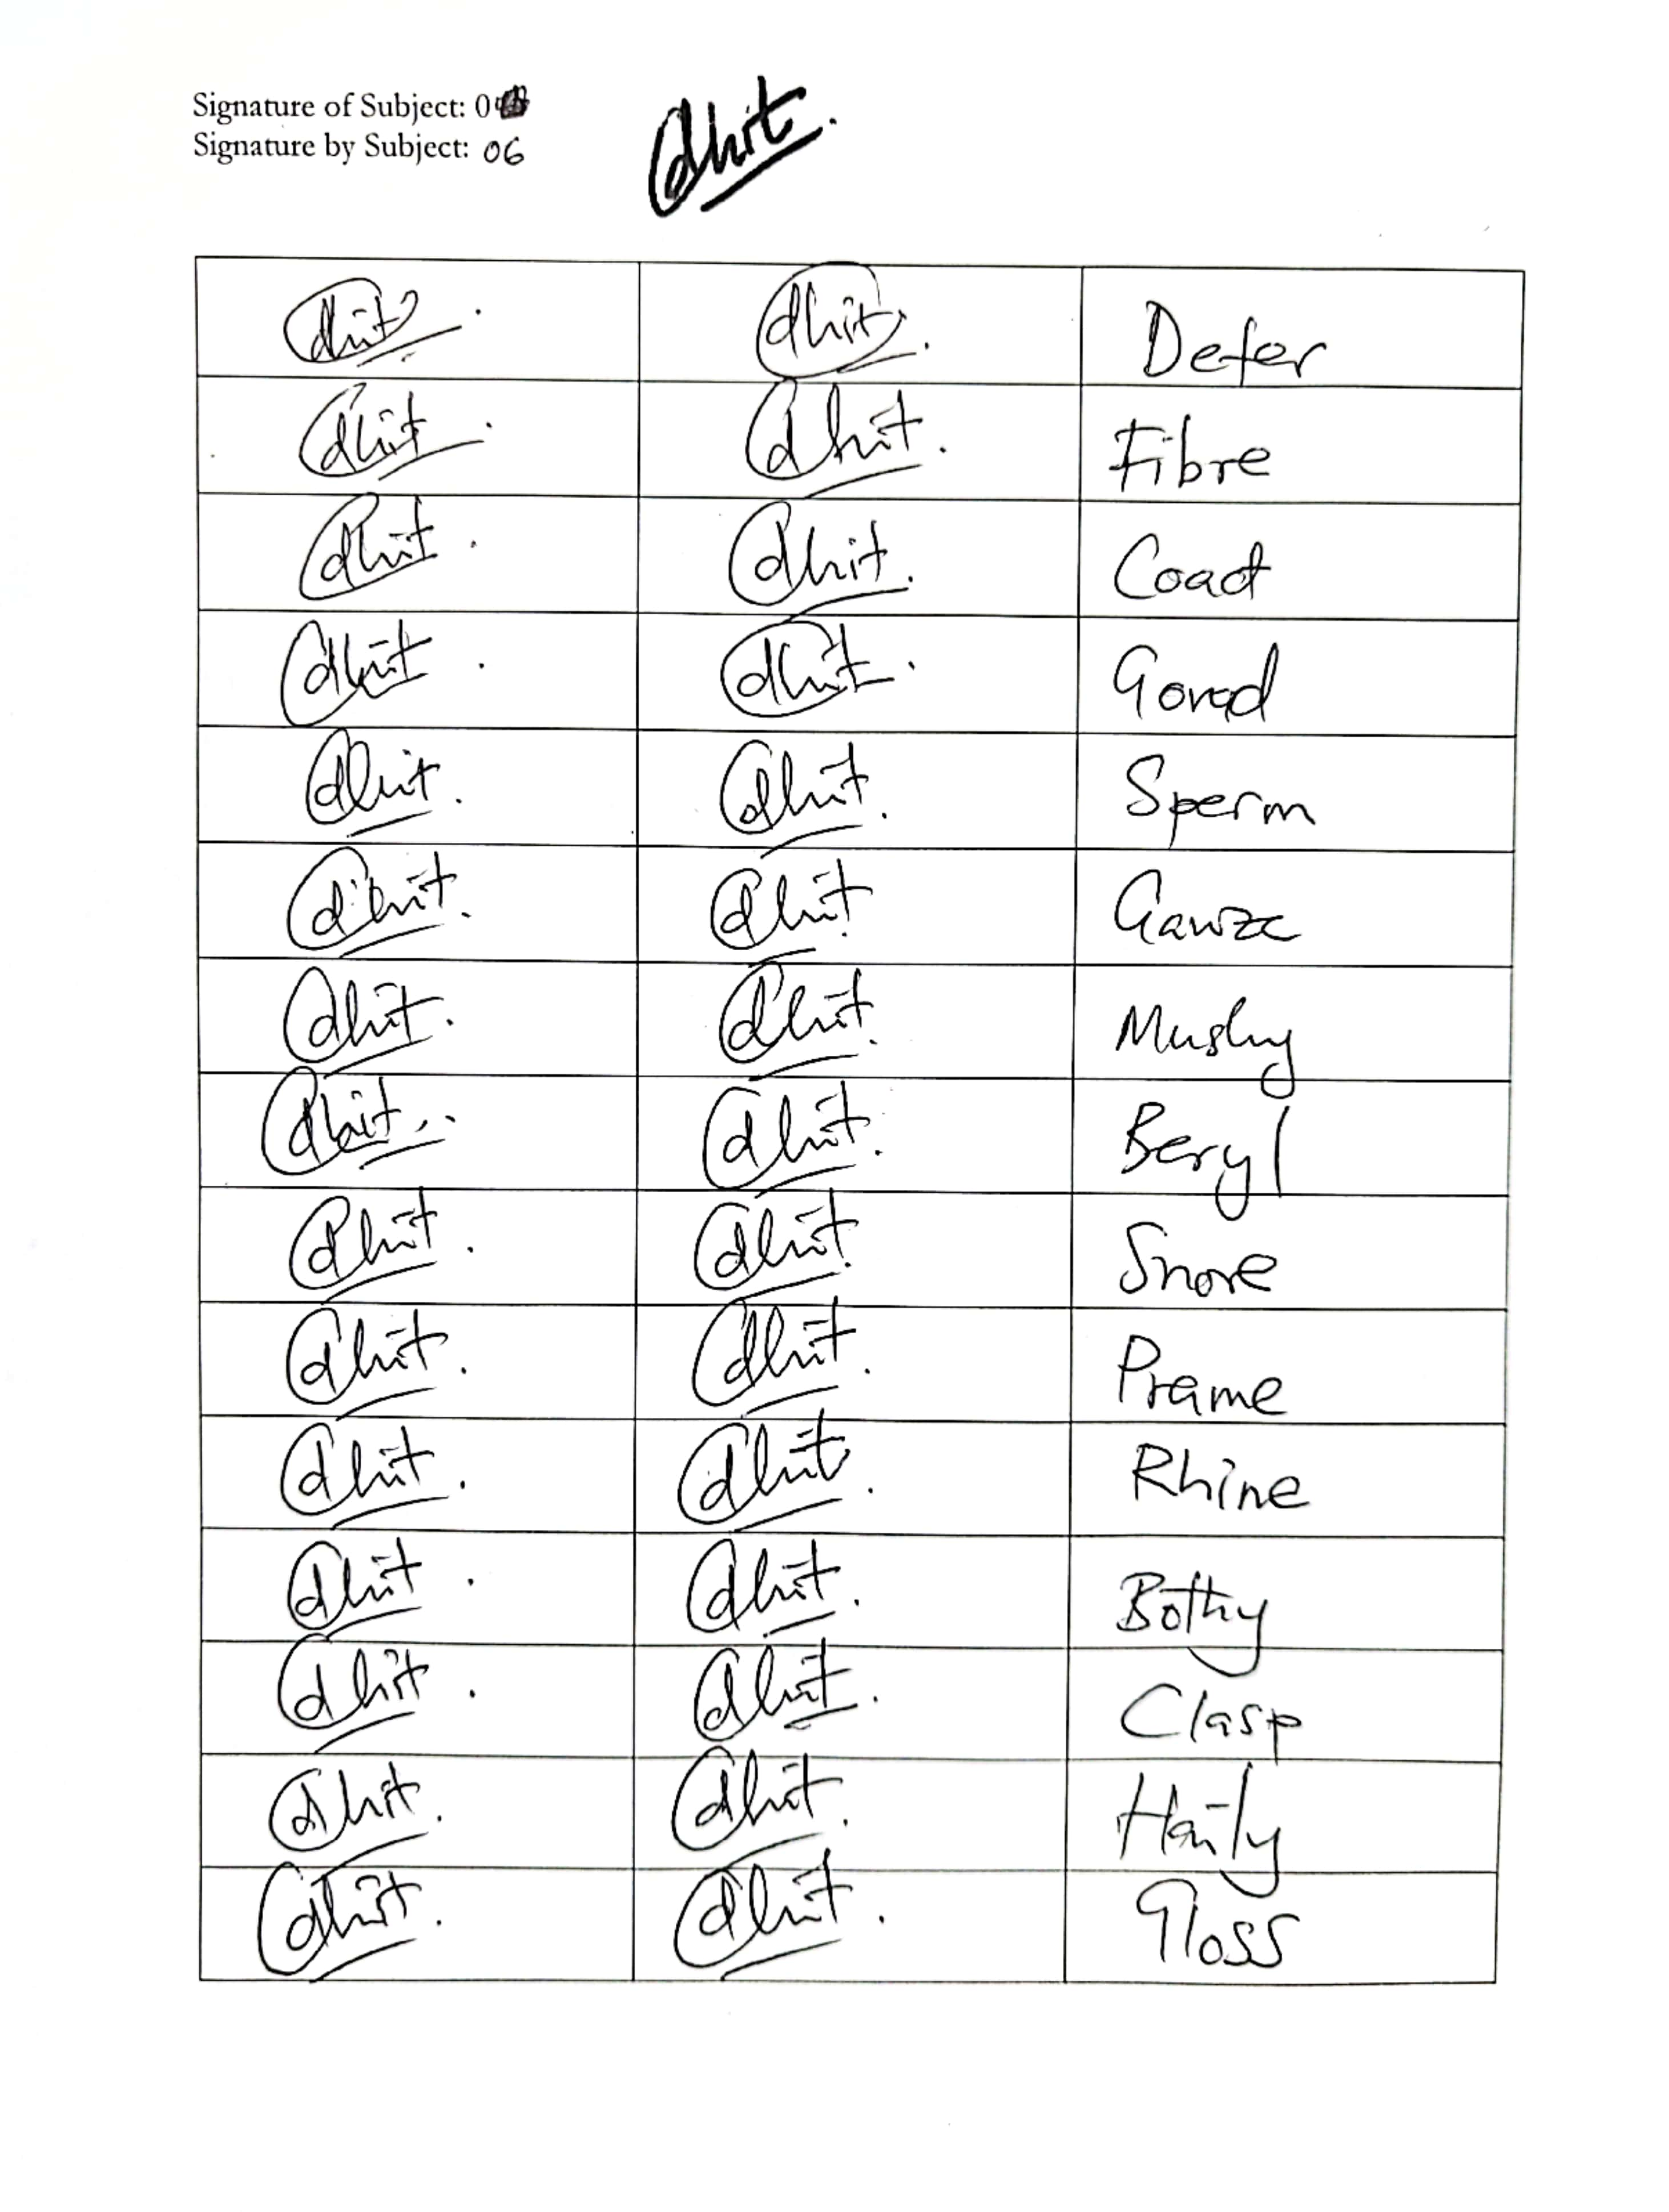 Signature of Subject: 0
Signature by Subject: 06
dhit.
dhit. dhit. Defer
dhit. dhit. Fibre
dhit. dhit. Coact
dhit. dhit. Gorad
dhit. dhit. Sperm
dhit. dhit. Gawze
dhit. dhit. Mushy
dhit. dhit. Beryl
dhit. dhit. Snore
dhit. dhit. Prame
dhit. dhit. Rhine
dhit. dhit. Bothy
dhit. dhit. Clasp
dhit. dhit. Haily
dhit. dhit. Gloss